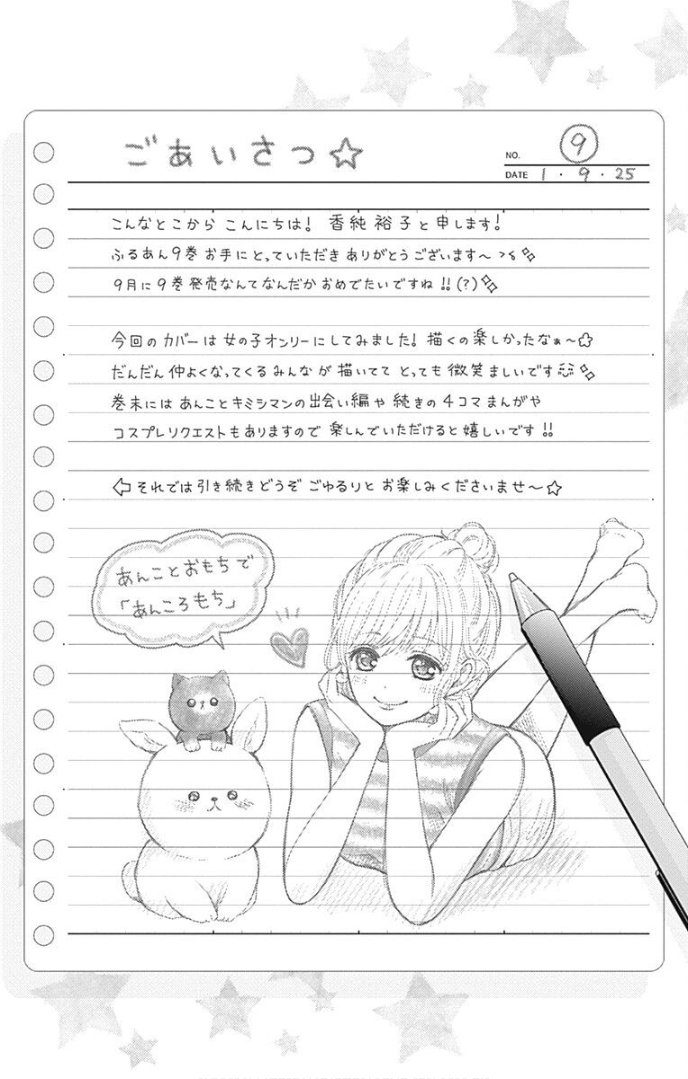 ごあいさつ☆
NO. ⑨
DATE 1・9・25
こんなとこから こんにちは! 香純裕子と申します!
ふるあん9巻 お手にとっていただき ありがとうございます〜
9月に9巻発売なんてなんだか おめでたいですね!!(?)
今回のカバーは女の子オンリーにしてみました! 描くの楽しかったなぁ〜☆
だんだん仲よくなってくるみんなが描いてて とっても微笑ましいです
巻末には あんことキミシマンの出会い編や 続きの4コマまんがや
コスプレリクエストもありますので 楽しんでいただけると嬉しいです!!
⇦それでは引き続きどうぞ ごゆるりと お楽しみくださいませ〜☆
あんことおもちで
「あんころもち」